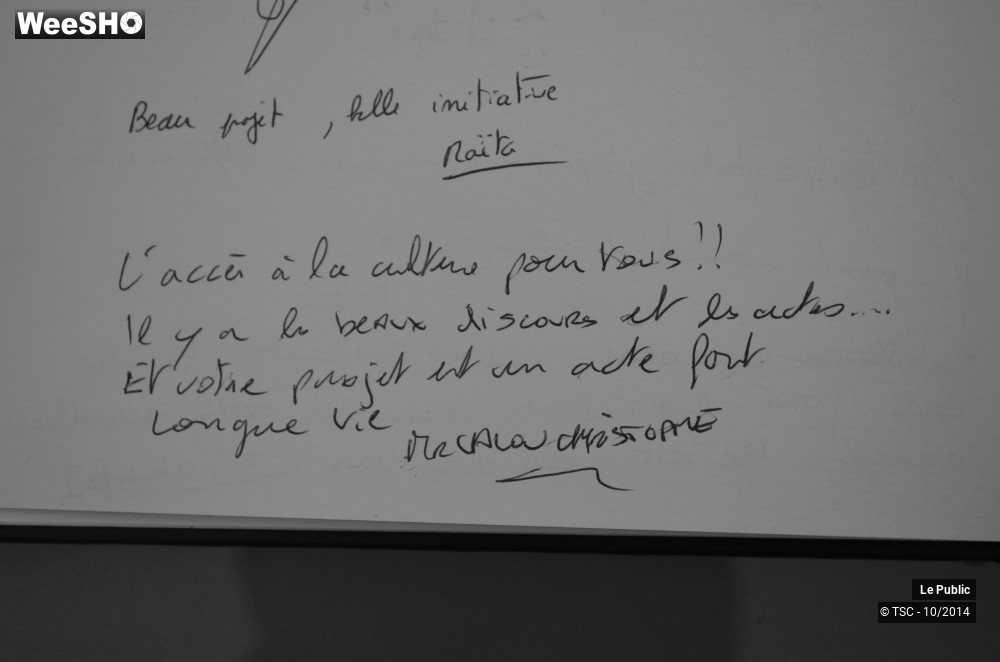 WeeSHO
Beau projet, belle initiative
Naïta
L'accès à la culture pour tous !!
Il y a les beaux discours et les actes....
Et votre projet est un acte fort
Longue vie
CHRISTOPHE
Le Public
© TSC - 10/2014